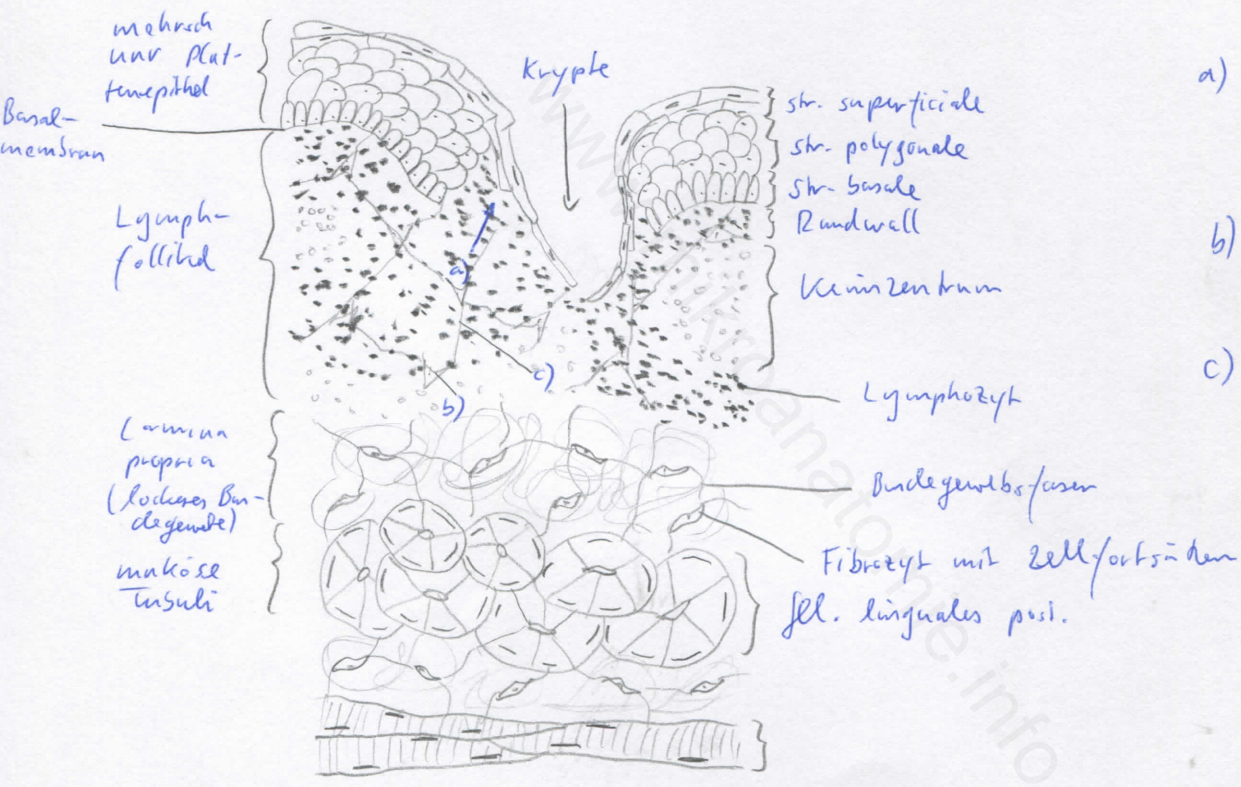 mehrsch
unv Plat-
tenepithel
Basal-
membran
Lymph-
follikel
Lamina
propria
(lockeres Bin-
degewebe)
muköse
Tubuli
Krypte
a)
b)
c)
str. superficiale
str. polygonale
str. basale
Randwall
Keimzentrum
Lymphozyt
Bindegewebsfaser
Fibrozyt mit Zellfortsätzen
Gll. linguales post.
a)
b)
c)
www.mikroanatomie.info